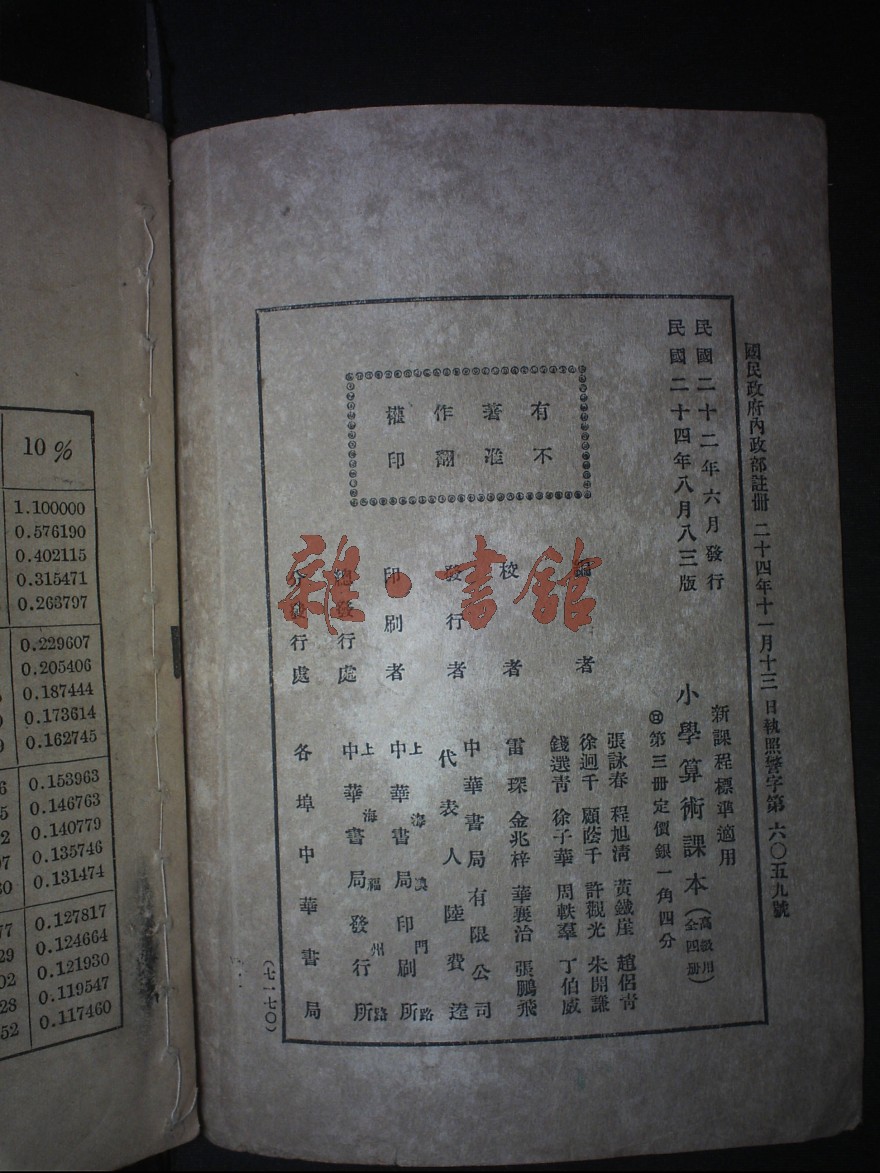 國民政府內政部註冊 二十四年十一月十三日執照警字第六〇五九號
民國二十二年六月發行
民國二十四年八月八三版
新課程標準適用
小學算術課本(高級用 全四冊)
第三冊定價銀一角四分
有著作權
不准翻印
編者
張詠春 程旭清 黃鐵崖 趙侶青
徐迥千 顧蔭千 許觀光 朱開謙
錢選青 徐子華 周軼羣 丁伯威
校者
雷琛 金兆梓 華襄治 張鵬飛
發行者
中華書局有限公司
代表人陸費逵
印刷者
上海澳門路
中華書局印刷所
總發行處
上海福州路
中華書局發行所
分發行處
各埠中華書局
(七一七〇)
雜·書館
10%
1.100000
0.576190
0.402115
0.315471
0.263797
0.229607
0.205406
0.187444
0.173614
0.162745
0.153963
0.146763
0.140779
0.135746
0.131474
0.127817
0.124664
0.121930
0.119547
0.117460